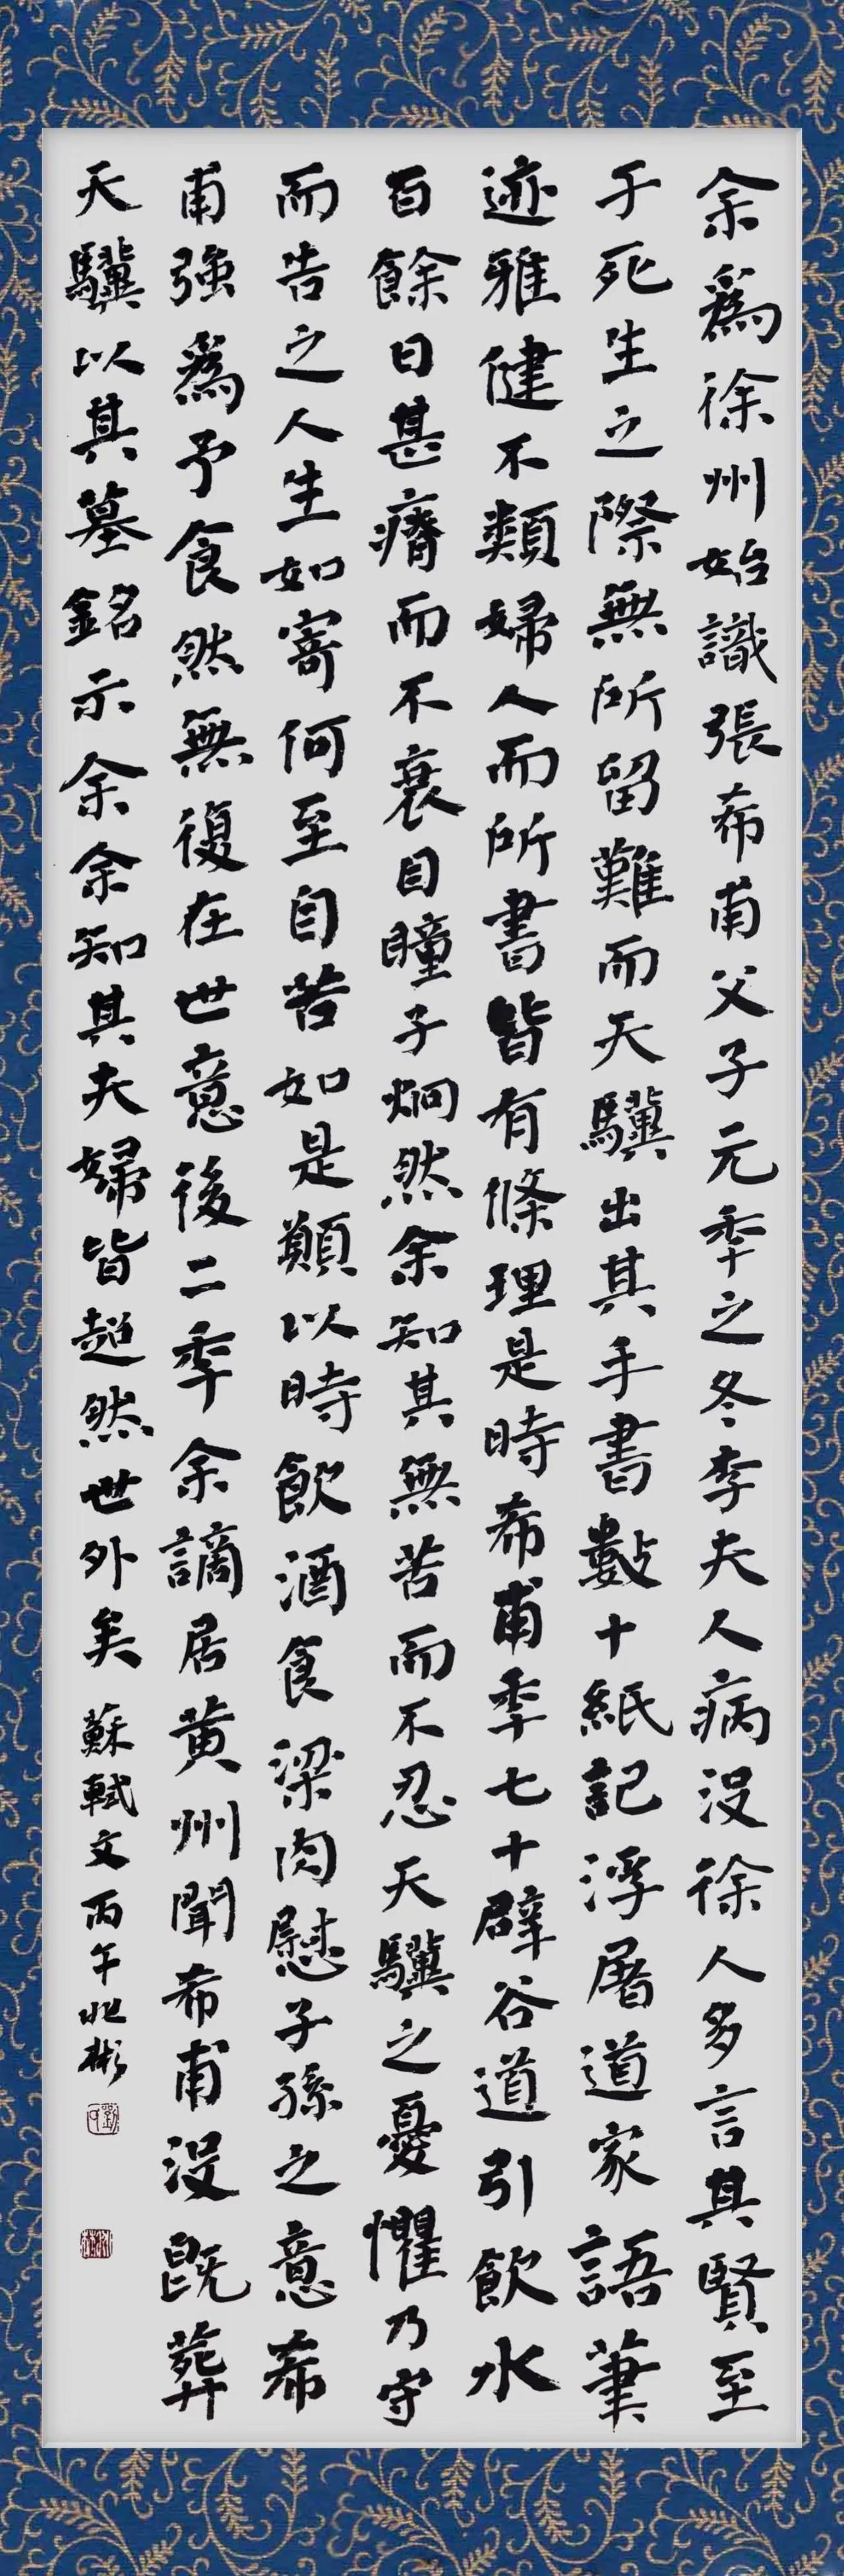 余為徐州始識張希甫父子元年之冬李夫人病沒徐人多言其賢至
于死生之際無所留難而天驥出其手書數十紙記浮屠道家語筆
迹雅健不類婦人而所書皆有條理是時希甫年七十辟谷道引飲水
百餘日甚瘠而不衰目瞳子炯然余知其無苦而不忍天驥之憂懼乃守
而告之人生如寄何至自苦如是願以時飲酒食梁肉慰子孫之意希
甫強為予食然無復在世意後二年余謫居黃州聞希甫沒既葬
天驥以其墓銘示余余知其夫婦皆超然世外矣 蘇軾文丙午兆彬